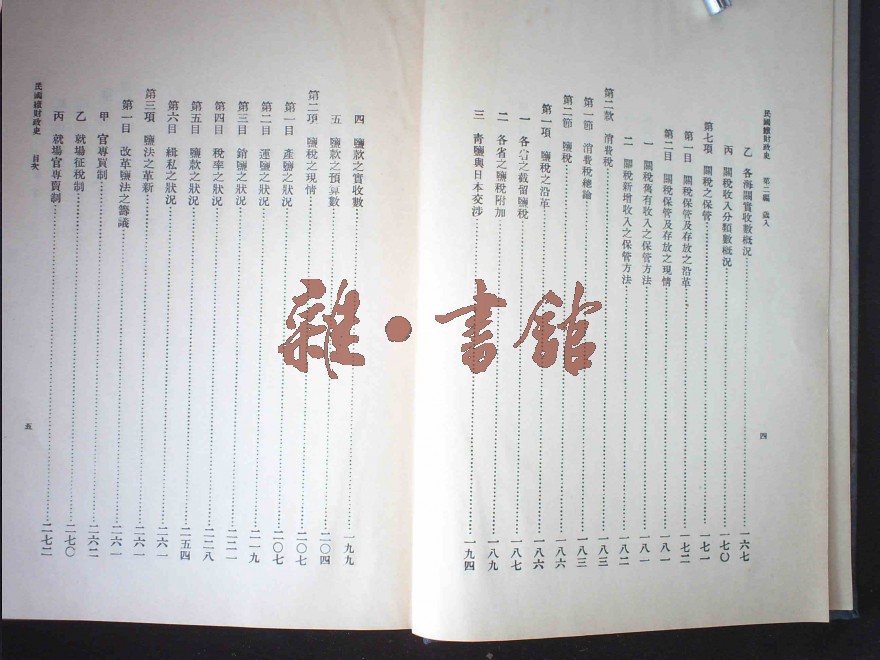 民國續財政史 第二編 歲入
乙 各海關實收數概況 一六七
丙 關稅收入分類數概況 一七〇
第七項 關稅之保管 一七一
第一目 關稅保管及存放之沿革 一七二
第二目 關稅保管及存放之現情 一八一
一 關稅舊有收入之保管方法 一八一
二 關稅新增收入之保管方法 一八二
第二款 消費稅 一八三
第一節 消費稅總論 一八三
第二節 鹽稅 一八六
第一項 鹽稅之沿革 一八六
一 各省之截留鹽稅 一八七
二 各省之鹽稅附加 一八九
三 靑鹽與日本交涉 一九四
四
四 鹽款之實收數 一九九
五 鹽款之預算數 二〇四
第二項 鹽稅之現情 二〇七
第一目 產鹽之狀況 二〇七
第二目 運鹽之狀況 二一九
第三目 銷鹽之狀況 二二一
第四目 稅率之狀況 二二八
第五目 鹽款之狀況 二五四
第六目 緝私之狀況 二六一
第三項 鹽法之革新 二六一
第一目 改革鹽法之籌議 二六一
甲 官專買制 二六二
乙 就場征稅制 二七〇
丙 就場官專賣制 二七二
民國續財政史 目次
五
雜·書館